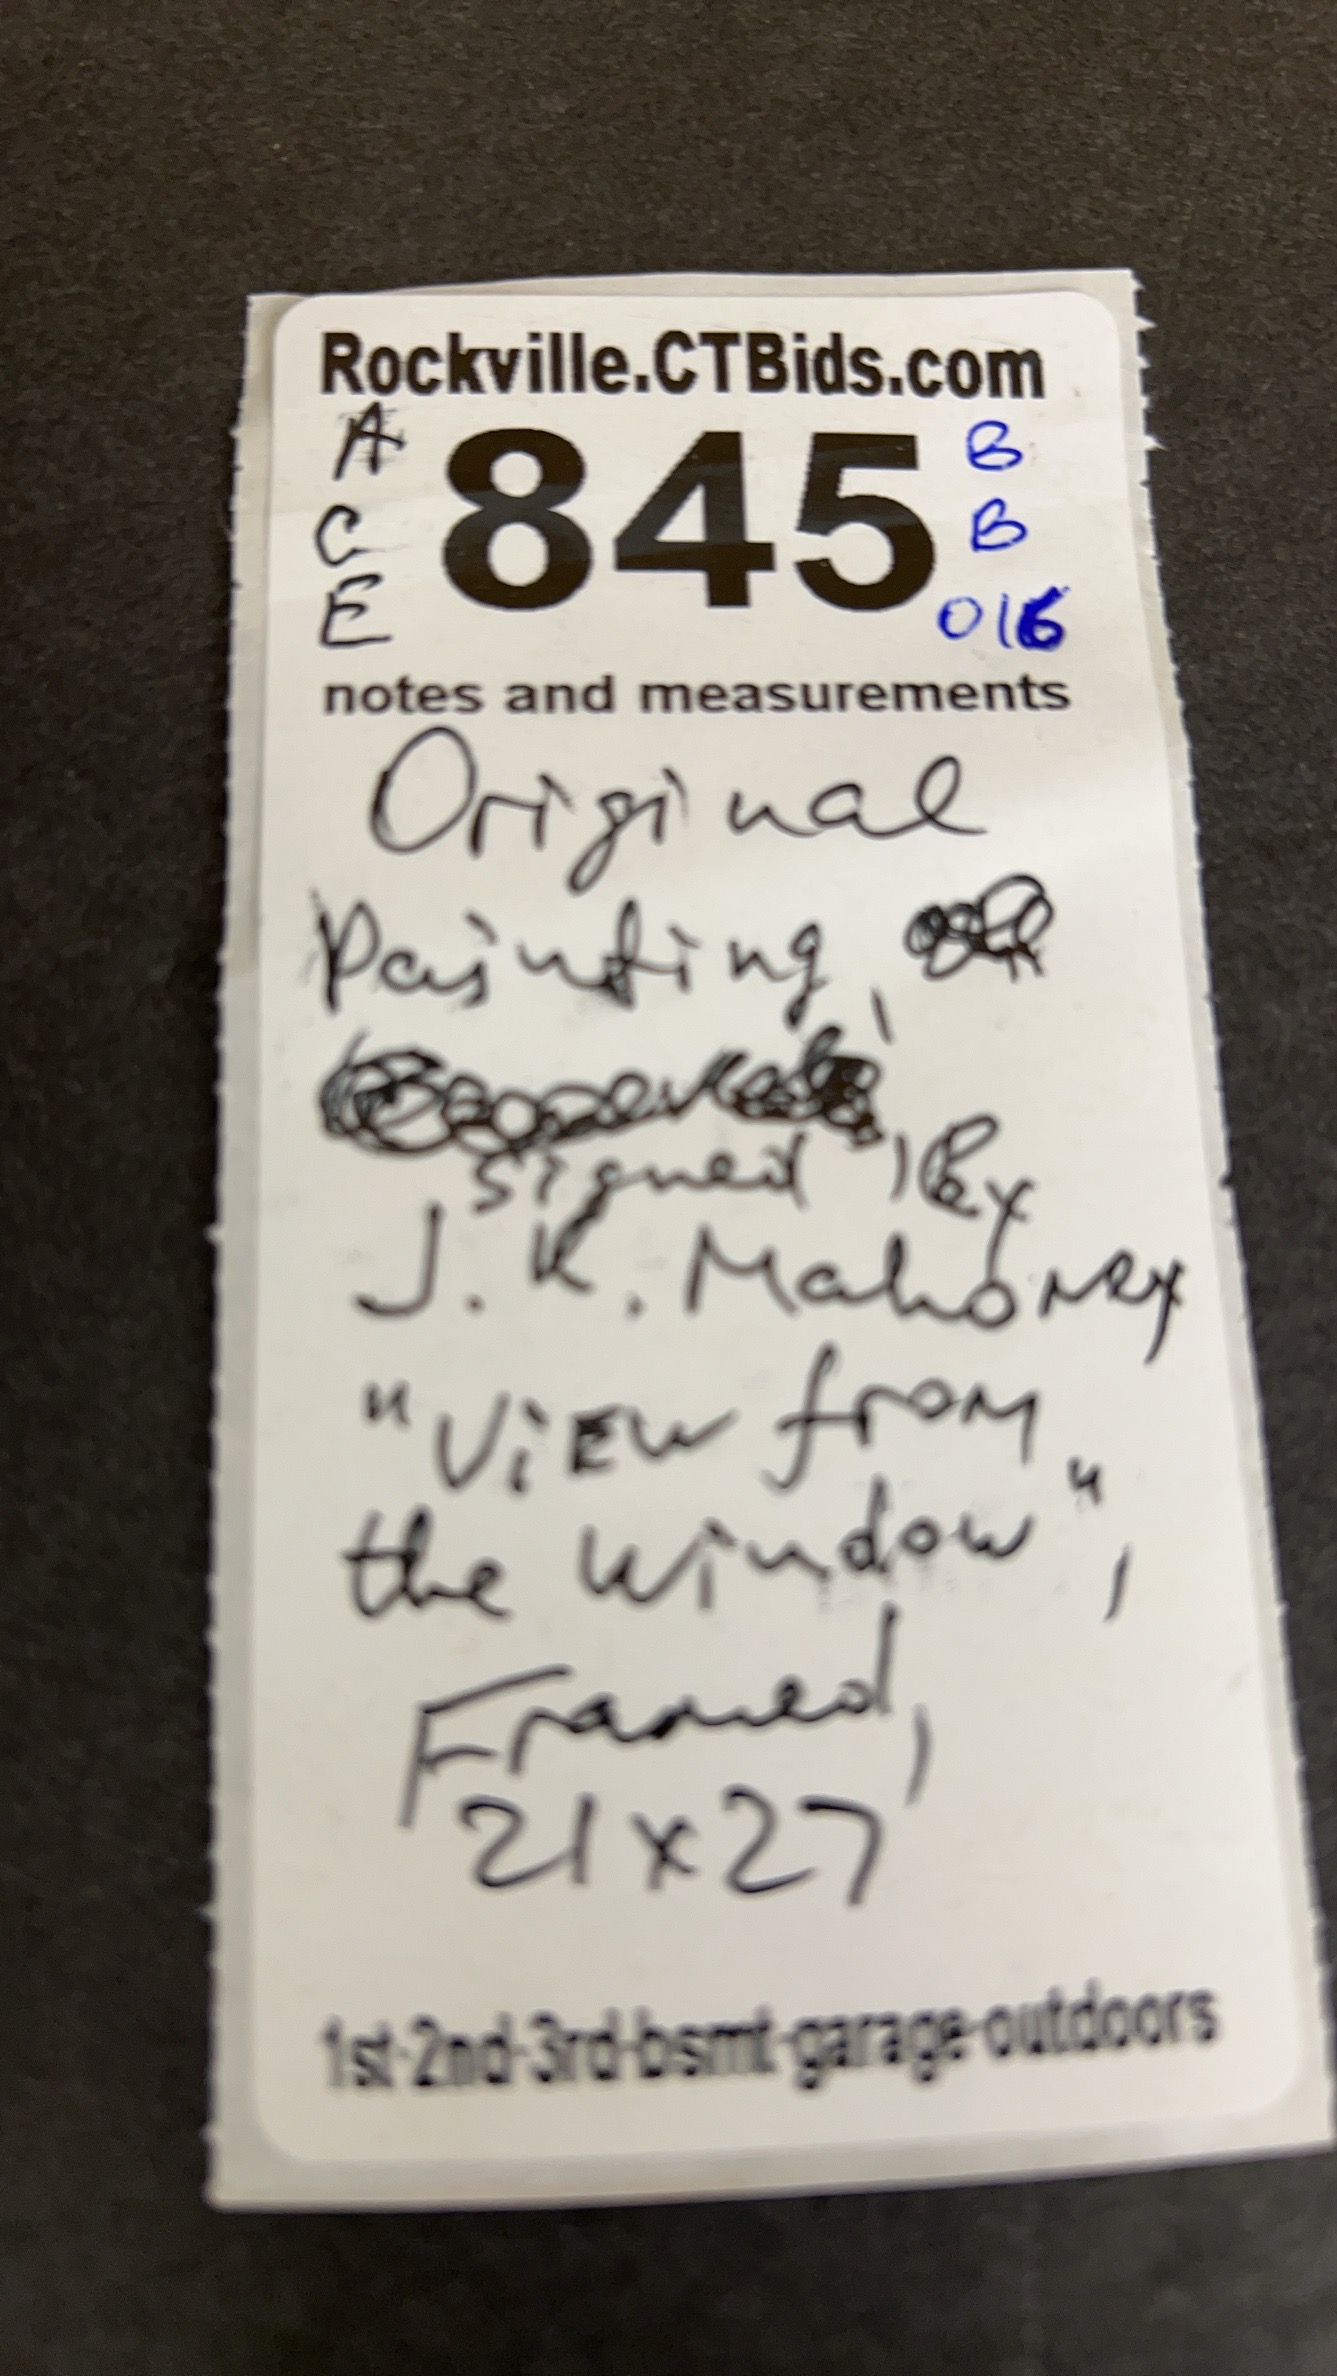 Rockville.CTBids.com
A 845 B
C B
E 016
notes and measurements
Original
Painting,
signed, by
J. K. Mahoney
"View from
the window",
Framed,
21x27
1st-2nd-3rd-bsmt-garage-outdoors